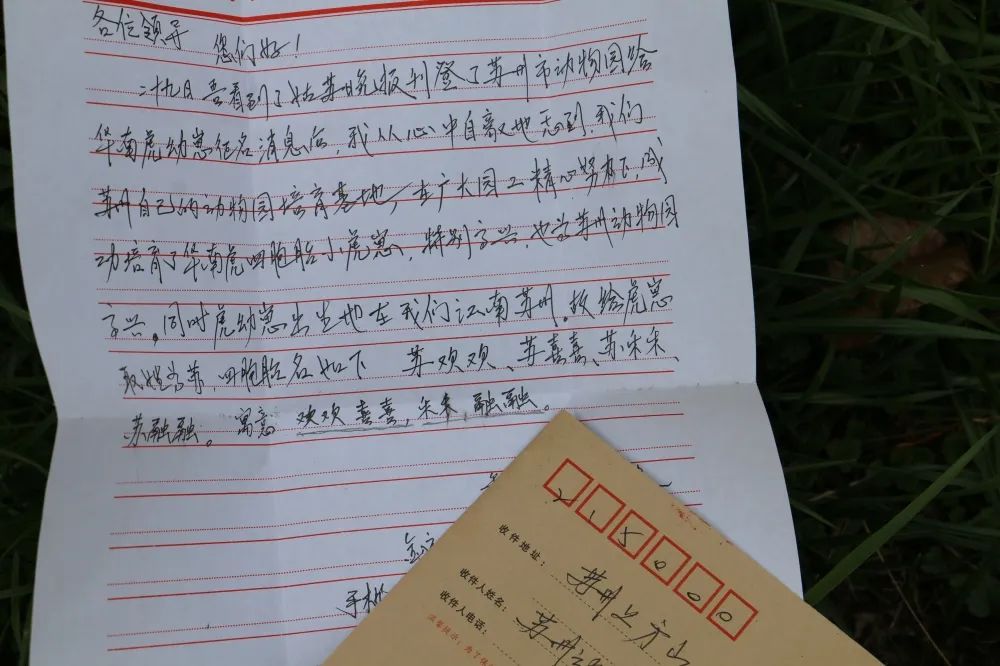 各位领导
您们好！
二十九日吾看到了姑苏晚报刊登了苏州市动物园给
华南虎幼崽征名消息后，我从心中自豪地感到，我们
苏州自己的动物园培育基地，在广大园工精心努力下，成
功培育了华南虎四胞胎小虎崽，特别高兴，也为苏州动物园
高兴。同时虎幼崽出生地在我们江南苏州。故给虎崽
取姓为苏，四胞胎名如下 苏欢欢、苏喜喜、苏乐乐、
苏融融。寓意 欢欢喜喜，乐乐融融。
手机
215000
收件地址： 苏州上方山
收件人姓名： 苏州
收件人电话：